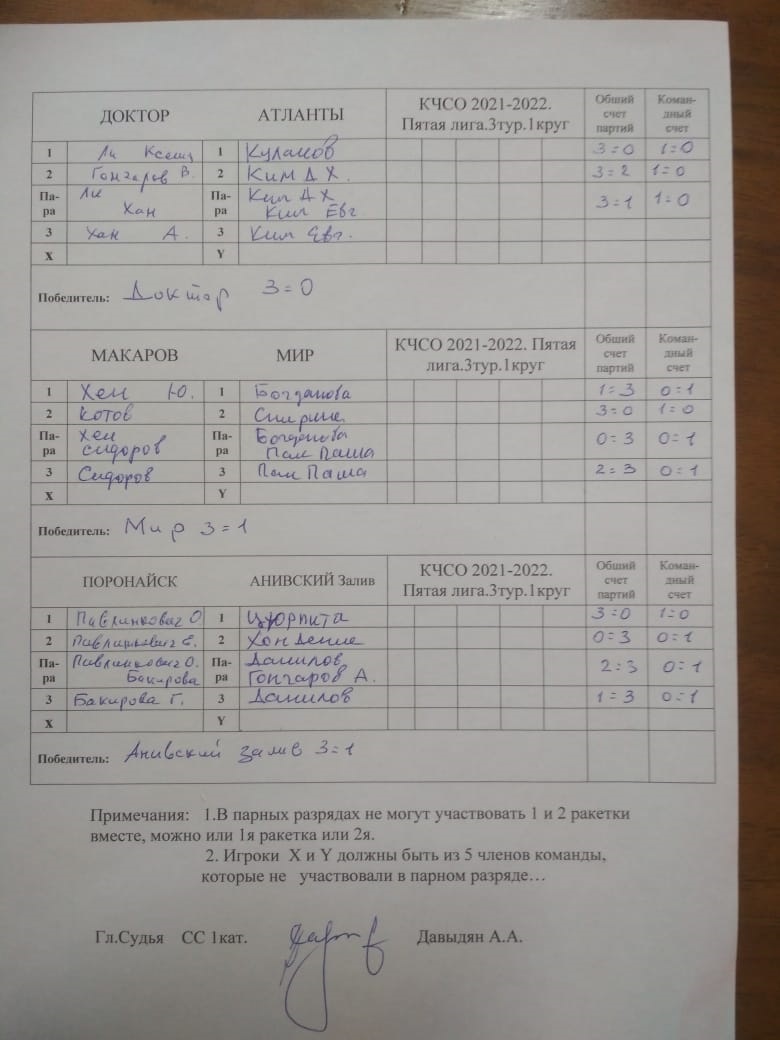 ДОКТОР АТЛАНТЫ КЧСО 2021-2022. Пятая лига.3тур.1круг Общий счет партий Коман-дный счет
1 Ли Ксения 1 Кулаков 3=0 1=0
2 Гончаров В. 2 Ким ДХ. 3=2 1=0
Па-ра Ли Хан Па-ра Ким ДХ Ким Евг 3=1 1=0
3 Хан А. 3 Ким Евг.
X Y
Победитель: Доктор 3=0
МАКАРОВ МИР КЧСО 2021-2022. Пятая лига.3тур.1круг Общий счет партий Коман-дный счет
1 Хен Ю. 1 Богданова 1=3 0=1
2 Котов 2 3=0 1=0
Па-ра Хен Сидоров Па-ра Богданова Пак Паша 0=3 0=1
3 Сидоров 3 Пак Паша 2=3 0=1
X Y
Победитель: Мир 3=1
ПОРОНАЙСК АНИВСКИЙ Залив КЧСО 2021-2022. Пятая лига.3тур.1круг Общий счет партий Коман-дный счет
1 Павлинкович О 1 3=0 1=0
2 Павлинкович Е. 2 Хон Дение 0=3 0=1
Па-ра Павлинкович О. Бакирова Па-ра Данилов Гончаров А. 2=3 0=1
3 Бакирова Г. 3 Данилов 1=3 0=1
X Y
Победитель: Анивский залив 3=1
Примечания: 1.В парных разрядах не могут участвовать 1 и 2 ракетки
вместе, можно или 1я ракетка или 2я.
2. Игроки X и Y должны быть из 5 членов команды,
которые не участвовали в парном разряде…
Гл.Судья СС 1кат. Давыдян А.А.